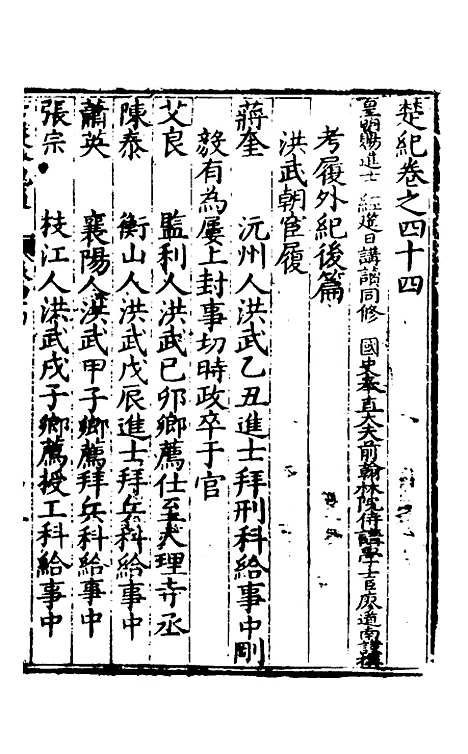 楚紀卷之四十四
皇明賜進士 經筵日講誥同修 國史奉直大夫前翰林院侍講學士臣廖道南謹撰
考履外紀後篇
洪武朝宦履
蔣奎 沅州人洪武乙丑進士拜刑科給事中剛
毅有為屢上封事切時政卒于官
艾良 監利人洪武己卯鄉薦仕至大理寺丞
陳泰 衡山人洪武戊辰進士拜兵科給事中
蕭英 襄陽人洪武甲子鄉薦拜兵科給事中
張宗 枝江人洪武戊子鄉薦授工科給事中